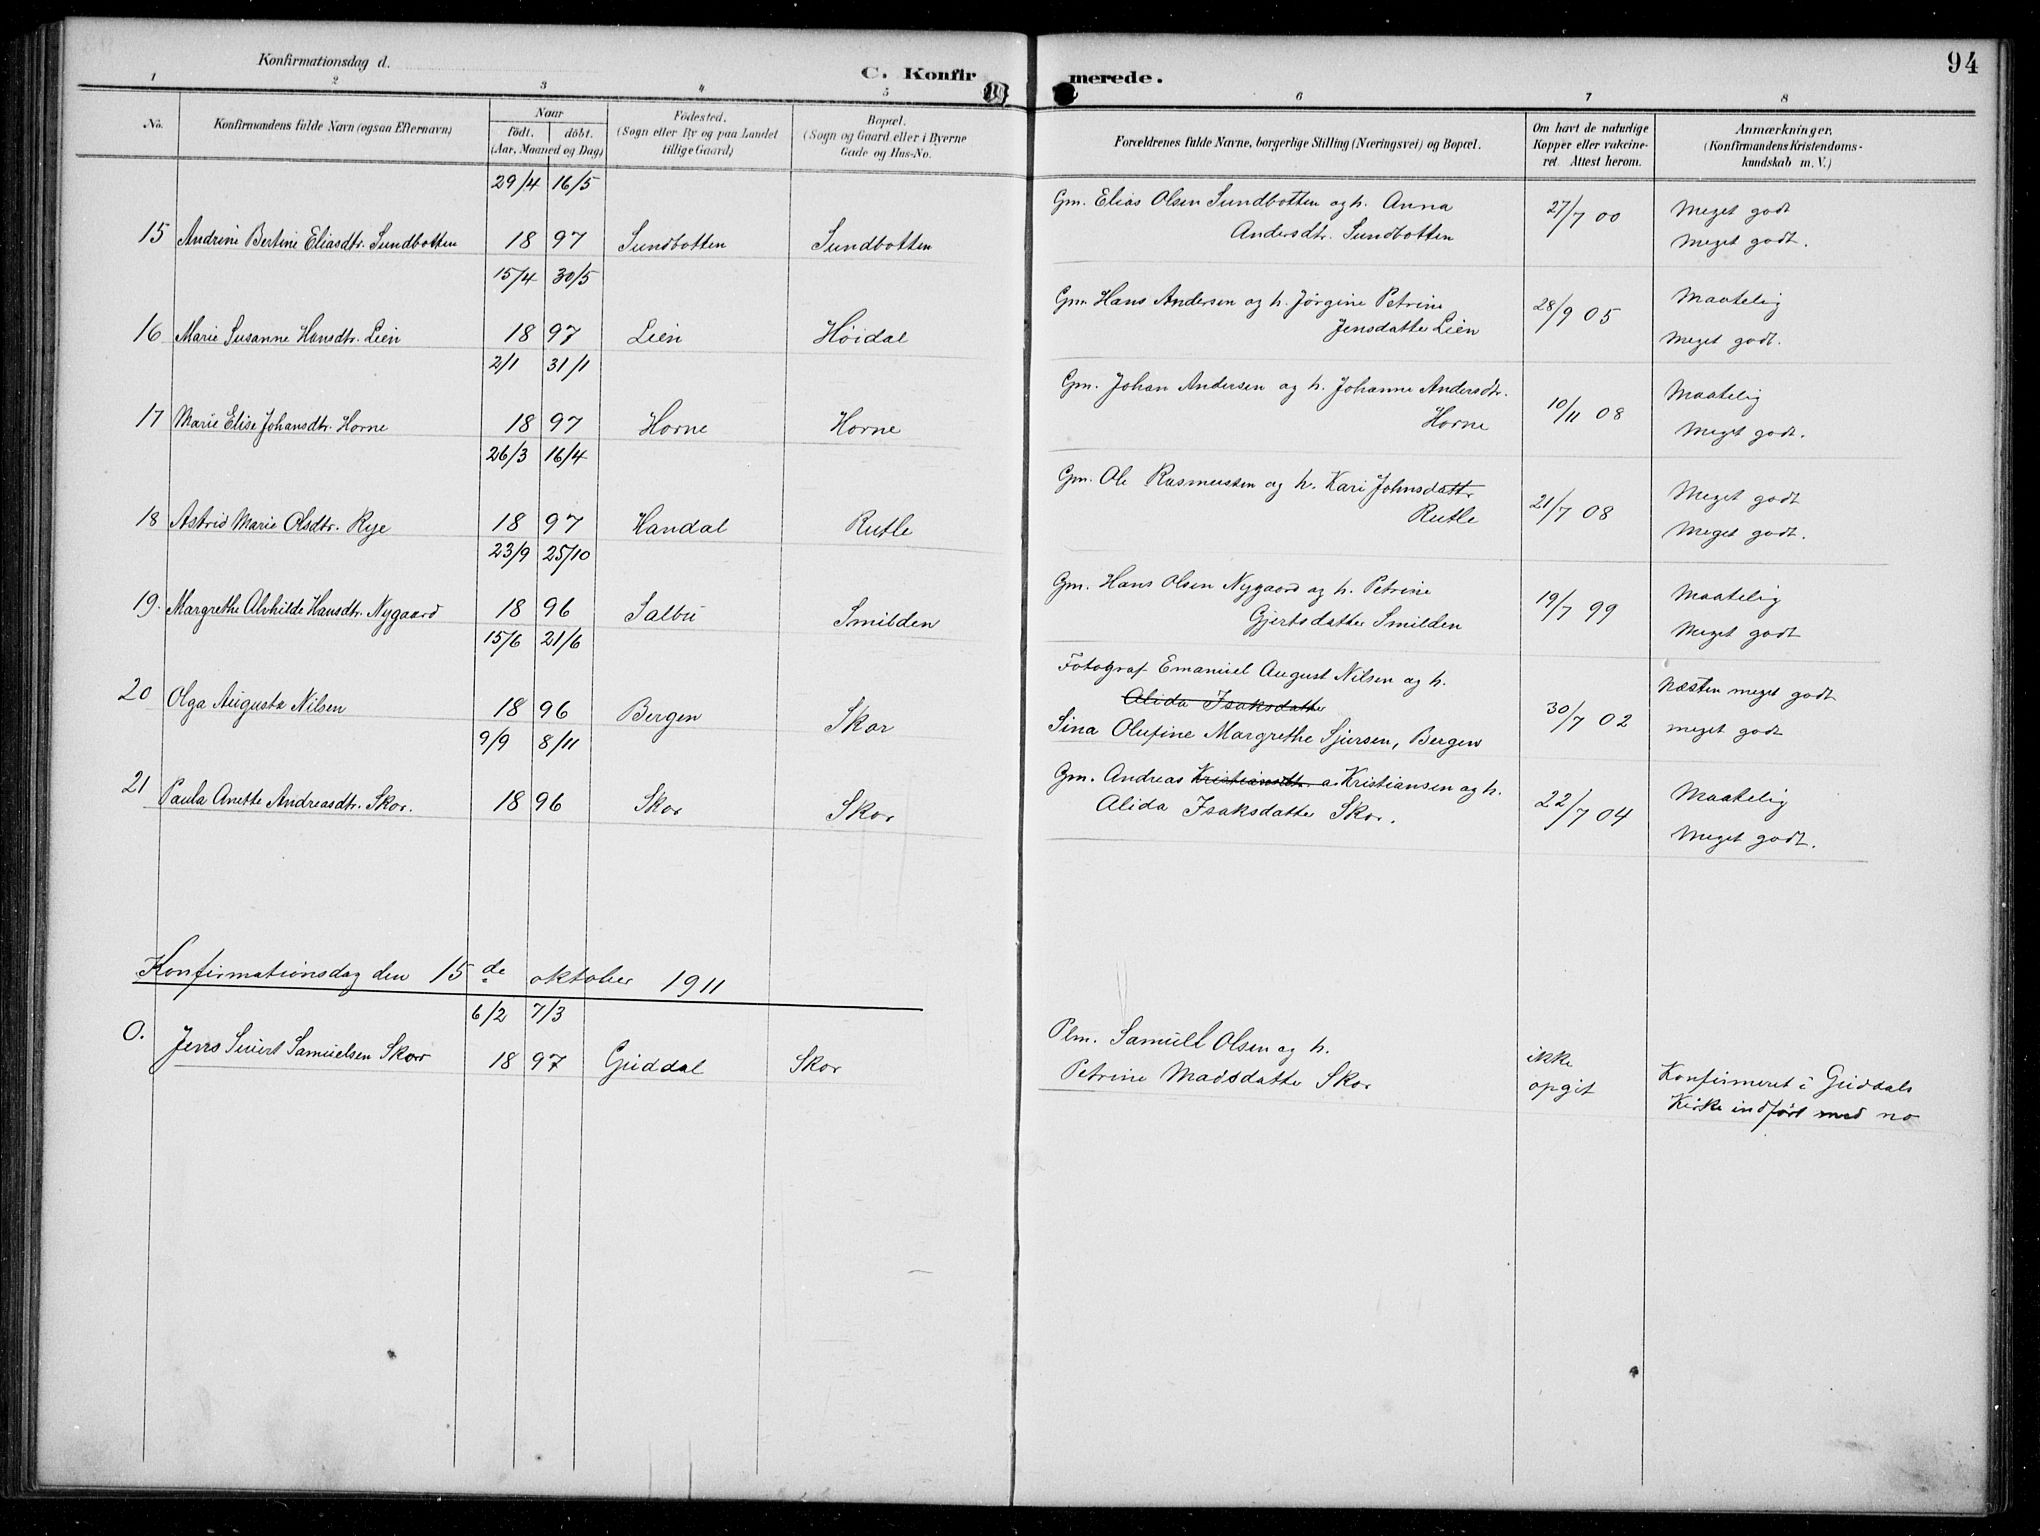 94
Konfirmationsdag d.
C. Konfirmerede.
1 2 3 4 5 6 7 8
No.
Konfirmandens fulde Navn (ogsaa Efternavn)
Naar
födt. döbt.
(Aar, Maaned og Dag)
Födested.
(Sogn eller By og paa Landet
tillige Gaard)
Bopæl.
(Sogn og Gaard eller i Byerne
Gade og Hus-No.
Forældrenes fulde Navne, borgerlige Stilling (Næringsvei) og Bopæl.
Om havt de naturlige
Kopper eller vakcine-
ret Attest herom.
Anmærkninger,
(Konfirmandens Kristendoms-
kundskab m. V.)
29/4 16/5
15 Andrine Bertine Eliasdtr. Sundbotten 18 97 Sundbotten Sundbotten
Gm. Elias Olsen Sundbotten og h. Anna
Andersdtr. Sundbotten
27/7 00
Meget godt
Meget godt.
15/4 30/5
16 Marie Susanne Hansdtr. Lien 18 97 Lien Höidal
Gm. Hans Andersen og h. Jørgine Petrine
Jensdatter Lien
28/9 05
Maatelig
Meget godt.
2/1 31/1
17 Marie Elise Johansdtr. Horne 18 97 Horne Horne
Gm. Johan Andersen og h. Johanne Andersdtr.
Horne
10/11 08
Maatelig
Meget godt.
26/3 16/4
18 Astrid Marie Olsdtr. Rye 18 97 Handal Rutle
Gm. Ole Rasmussen og h. Kari Johnsdattr
Rutle
21/7 08
Meget godt
Meget godt.
23/9 25/10
19. Margrethe Alvhilde Hansdtr. Nygaard 18 96 Salbu Smilden
Gm. Hans Olsen Nygaard og h. Petrine
Gjertsdatter Smilden
19/7 99
Maatelig
Meget godt
15/6 21/6
20 Olga Augusta Nilsen 18 96 Bergen Skor
Fotograf Emanuel August Nilsen og h.
Alida Isaksdatter
Sina Olufine Margrethe Sjursen, Bergen
30/7 02
Næsten meget godt
meget godt
9/9 8/11
21 Paula Anette Andreasdtr. Skor. 18 96 Skor Skor
Gm. Andreas Kristiansdtr. a. Kristiansen og h.
Alida Isaksdatter Skor.
22/7 04
Maatelig
Meget godt.
Konfirmationsdag den 15de oktober 1911
6/2 7/3
0. Jens Sivert Samuelsen Skor 18 97 Guddal Skor
Plm. Samuel Olsen og h.
Petrine Madsdatter Skor
ikke
opgit
Konfirmeret i Guddals
Kirke indført med no